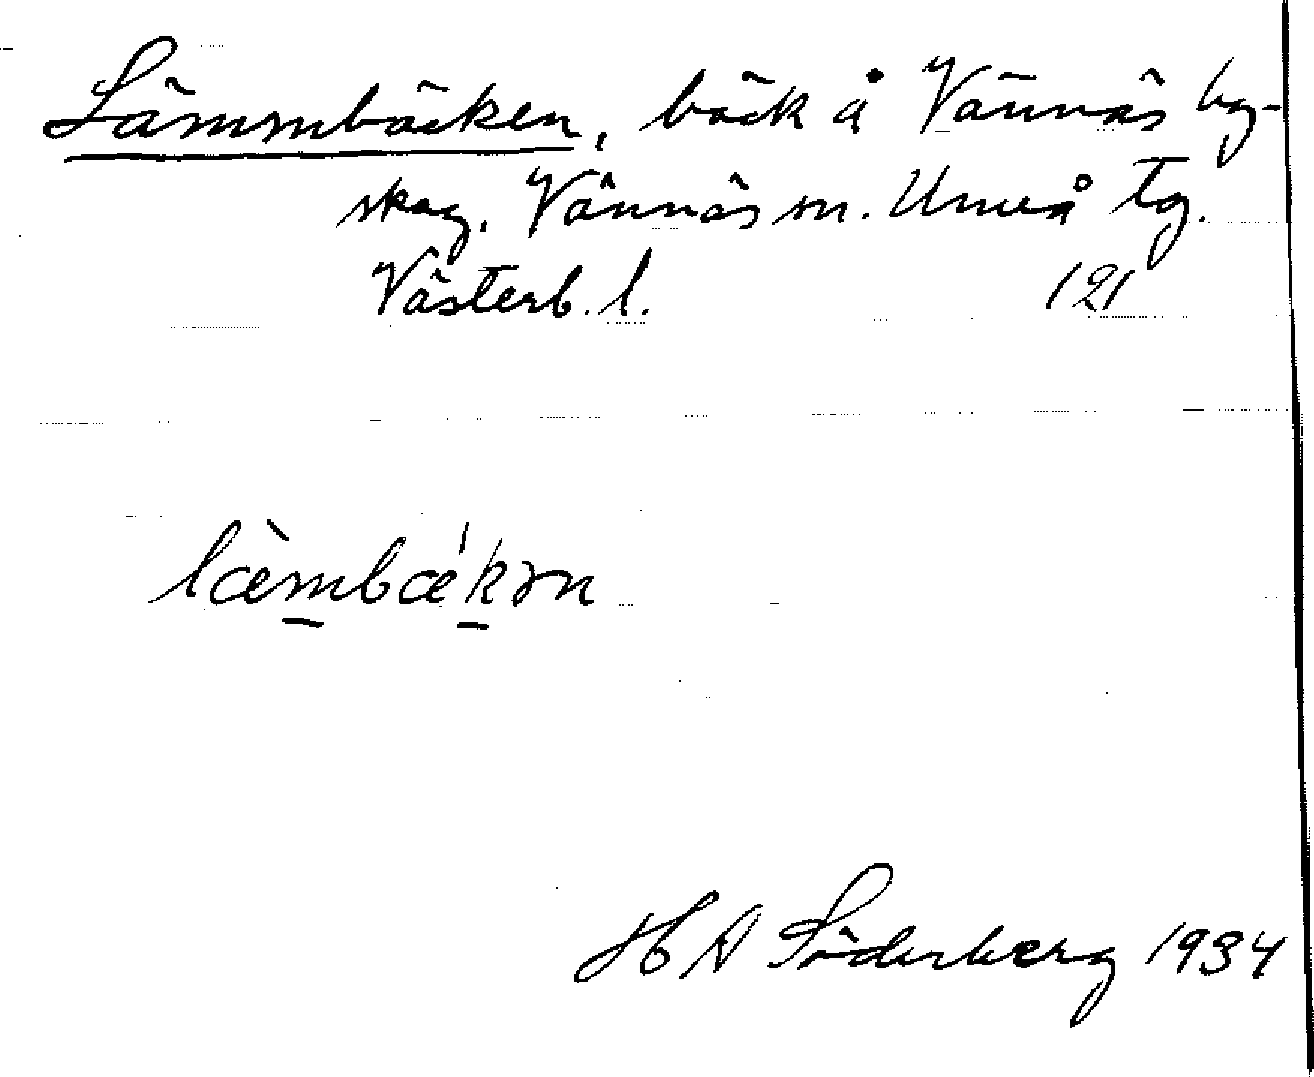 Lämmbäcken, bäck å Vännäs by-
skog. Vännäs sn. Umeå tg.
Västerb. l. 121
læ̀mbæ'kən
H A Söderberg 1934